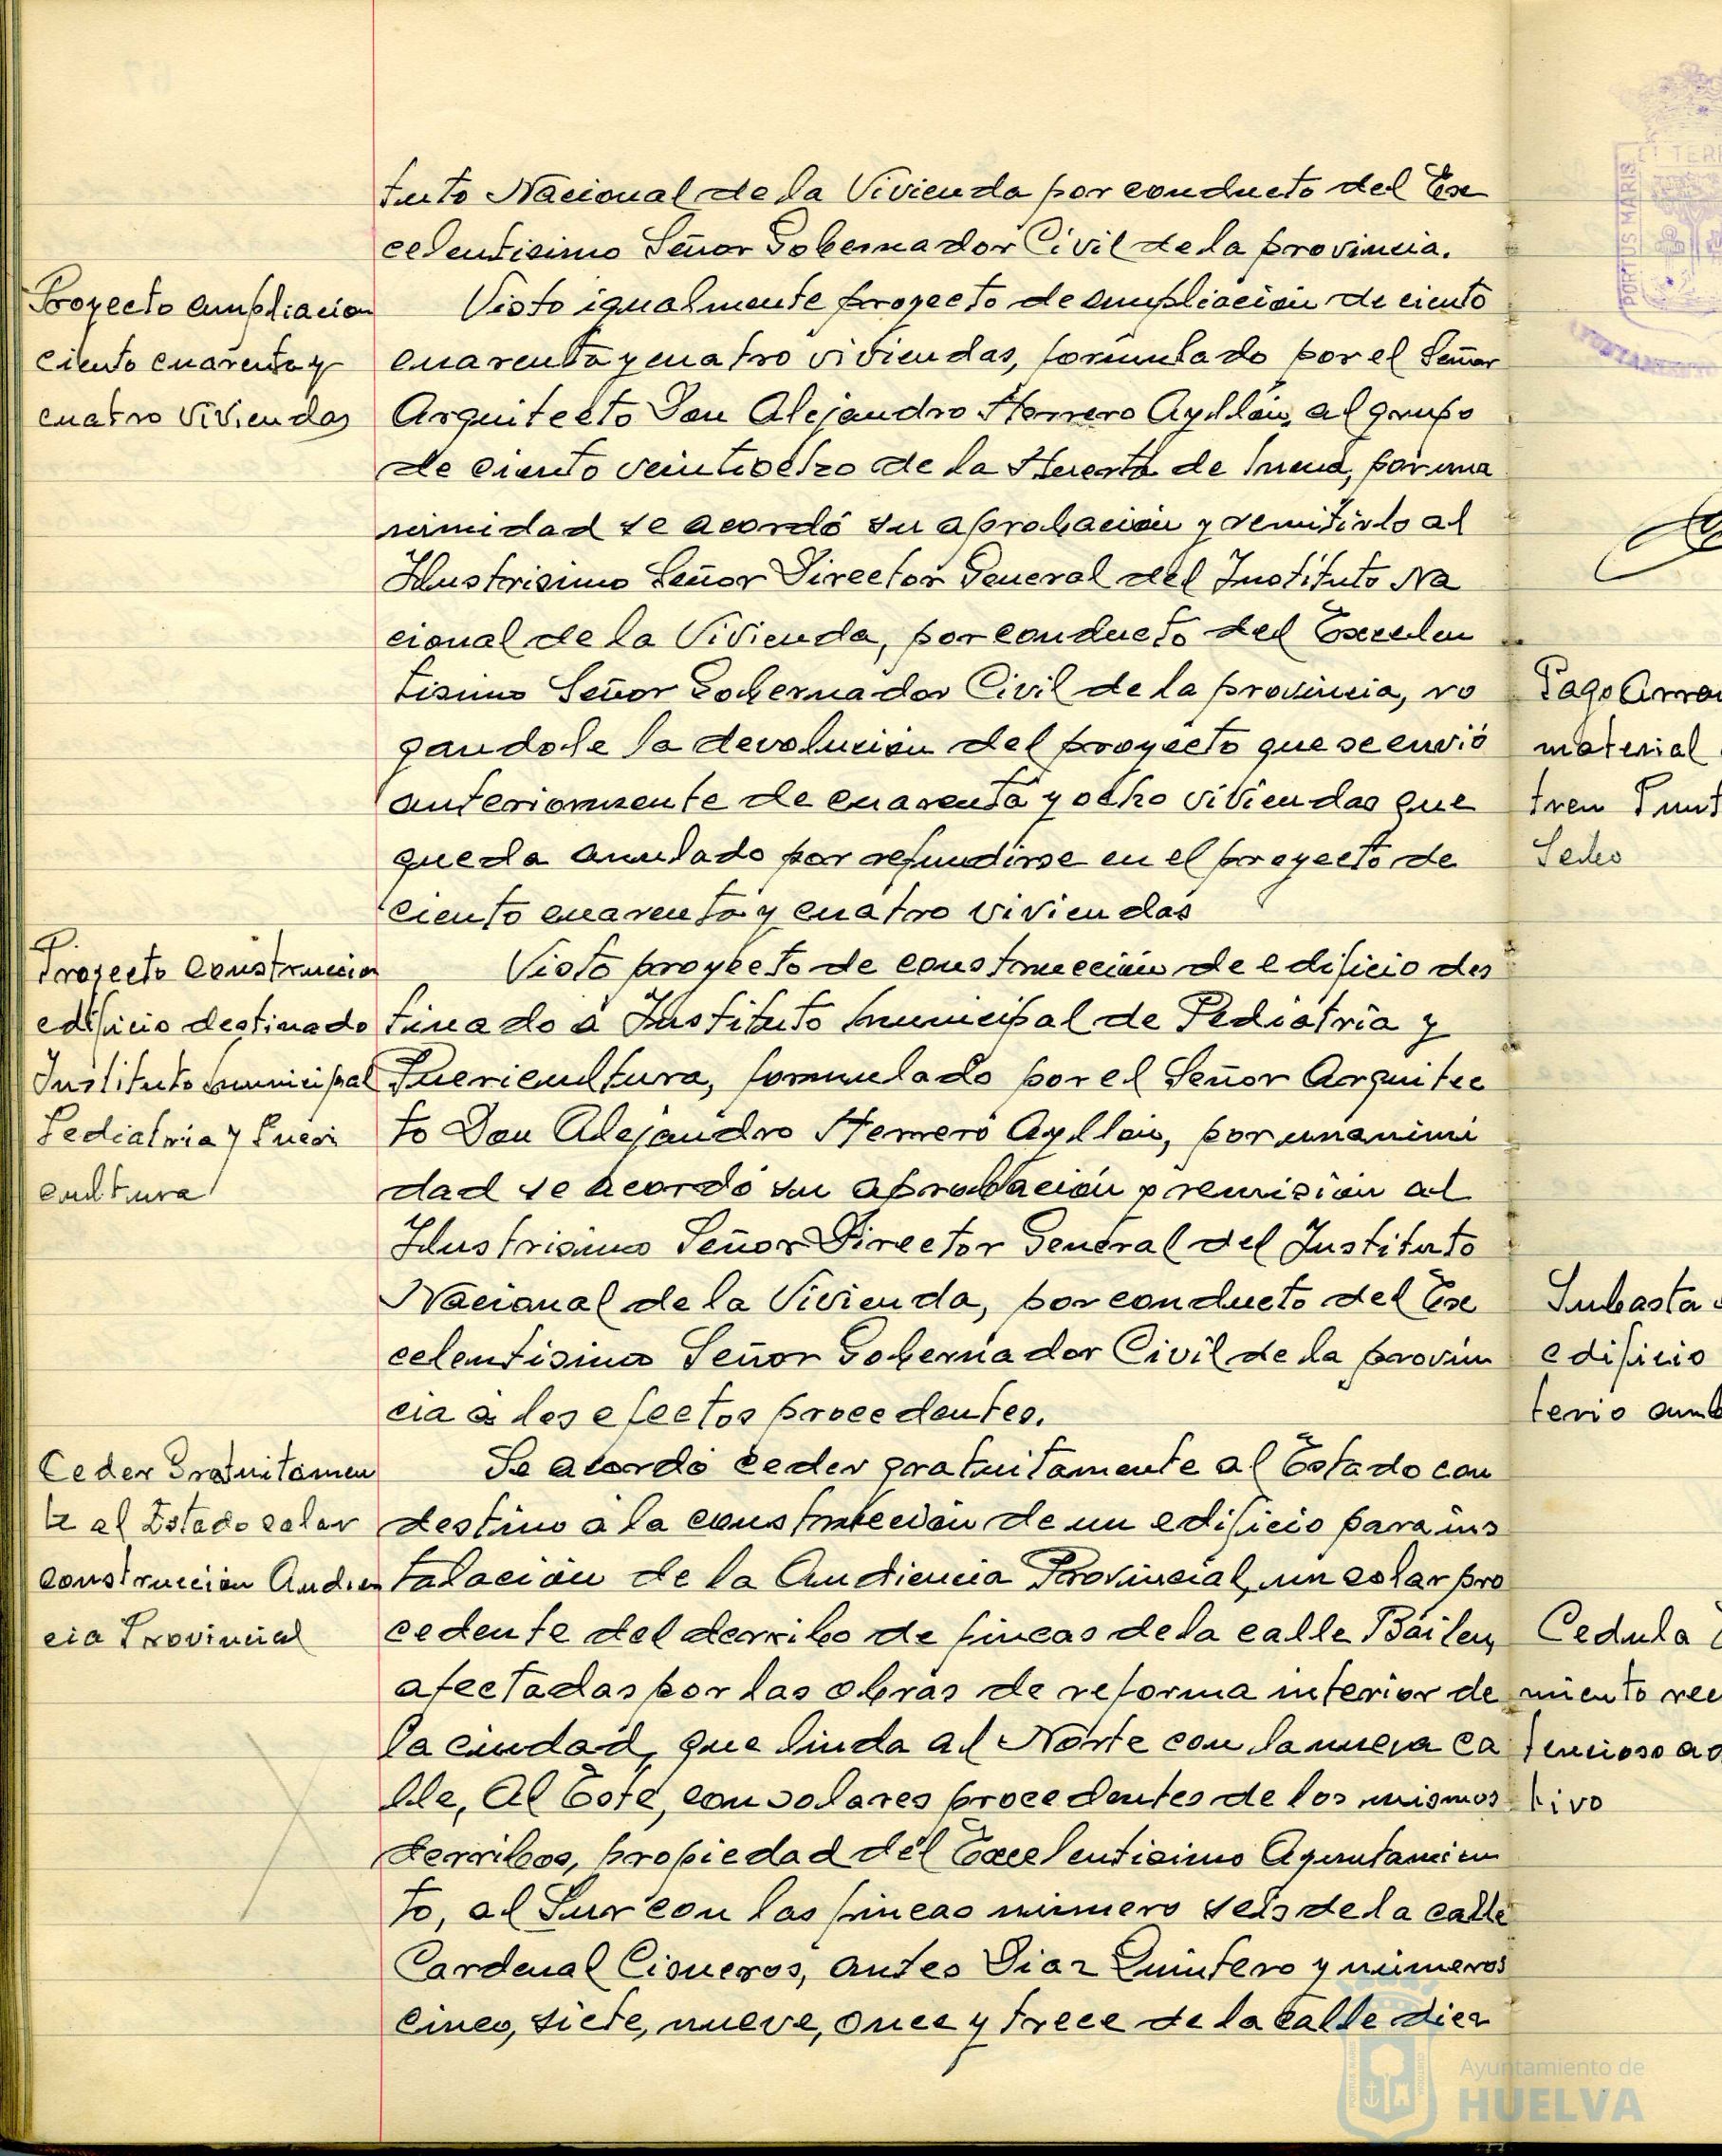 tuto Nacional de la Vivienda por conducto del Ex
celentisimo Señor Gobernador Civil de la provincia.
Proyecto ampliacion
ciento cuarenta y
cuatro viviendas
Visto igualmente proyecto de ampliación de ciento
cuarenta y cuatro viviendas, formulado por el Señor
Arquitecto Don Alejandro Herrero Ayllón, al grupo
de ciento veintiocho de la Huerta de Mena, por una
nimidad se acordó su aprobación y remitirlo al
Ilustrisimo Señor Director General del Instituto Na
cional de la Vivienda, por conducto del Excelen
tisimo Señor Gobernador Civil de la provincia, ro
gandole la devolución del proyecto que se envió
anteriormente de cuarenta y ocho viviendas que
queda anulado por refundirse en el proyecto de
ciento cuarenta y cuatro viviendas
P.
Proyecto Construccion
edificio destinado
Instituto municipal
Pediatria y Pueri
cultura
Visto proyecto de construcción de edificio des
tinado á Instituto municipal de Pediatría y
Puericultura, formulado por el Señor Arquitec
to Don Alejandro Herrero Ayllón, por unanimi
dad se acordó su aprobación y remisión al
Ilustrisimo Señor Director General del Instituto
Nacional de la Vivienda, por conducto del Ex
celentisimo Señor Gobernador Civil de la provin
cia á los efectos procedentes.
Ceder Gratuitamen
te al Estado solar
construccion Audien
cia Provincial
Se acordó ceder gratuitamente al Estado con
destino a la construcción de un edificio para ins
talación de la Audiencia Provincial, un solar pro
cedente del derribo de fincas de la calle Bailen,
afectadas por las obras de reforma interior de
la ciudad, que linda al Norte con la nueva ca
lle, Al Este, con solares procedentes de los mismos
derribos, propiedad del Excelentisimo Ayuntamien
to, al Sur con las fincas número seis de la calle
Cardenal Cisneros, antes Diaz Quintero y números
cinco, siete, nueve, once y trece de la calle diez
PORTUS MARIS
ET TERR
Pago Arra
material
tren
Seko
Subasta
edificio
terio amb
Cedula
miento rec
tencioso ad
tivo
Ayuntamiento de
HUELVA